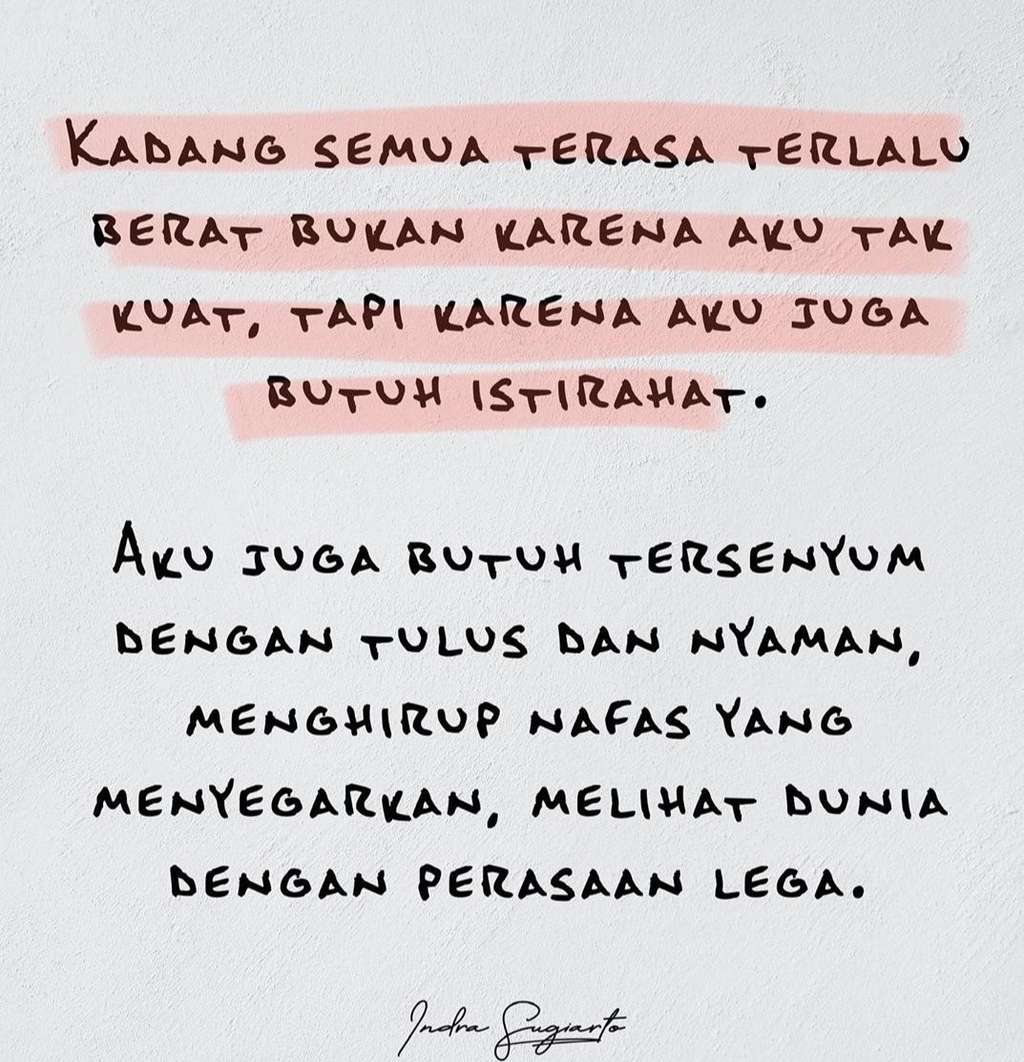 Kadang semua terasa terlalu
berat bukan karena aku tak
kuat, tapi karena aku juga
butuh istirahat.
Aku juga butuh tersenyum
dengan tulus dan nyaman,
menghirup nafas yang
menyegarkan, melihat dunia
dengan perasaan lega.
Indra Sugiarto